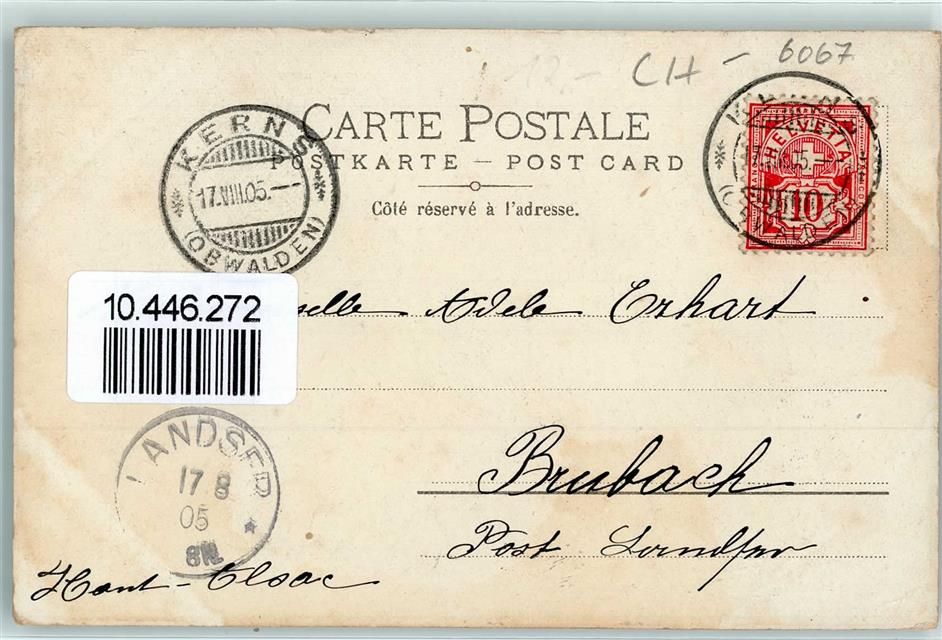 CH - 6067
CARTE POSTALE
POSTKARTE – POST CARD
Côté réservé à l'adresse.
KERNS
17.VIII.05.–
(OBWALDEN)
HELVETIA
10
10.446.272
selle Adele Erhart
Brubach
Post Landser
Haut-Elsac
LANDSER
17 8
05
8N.